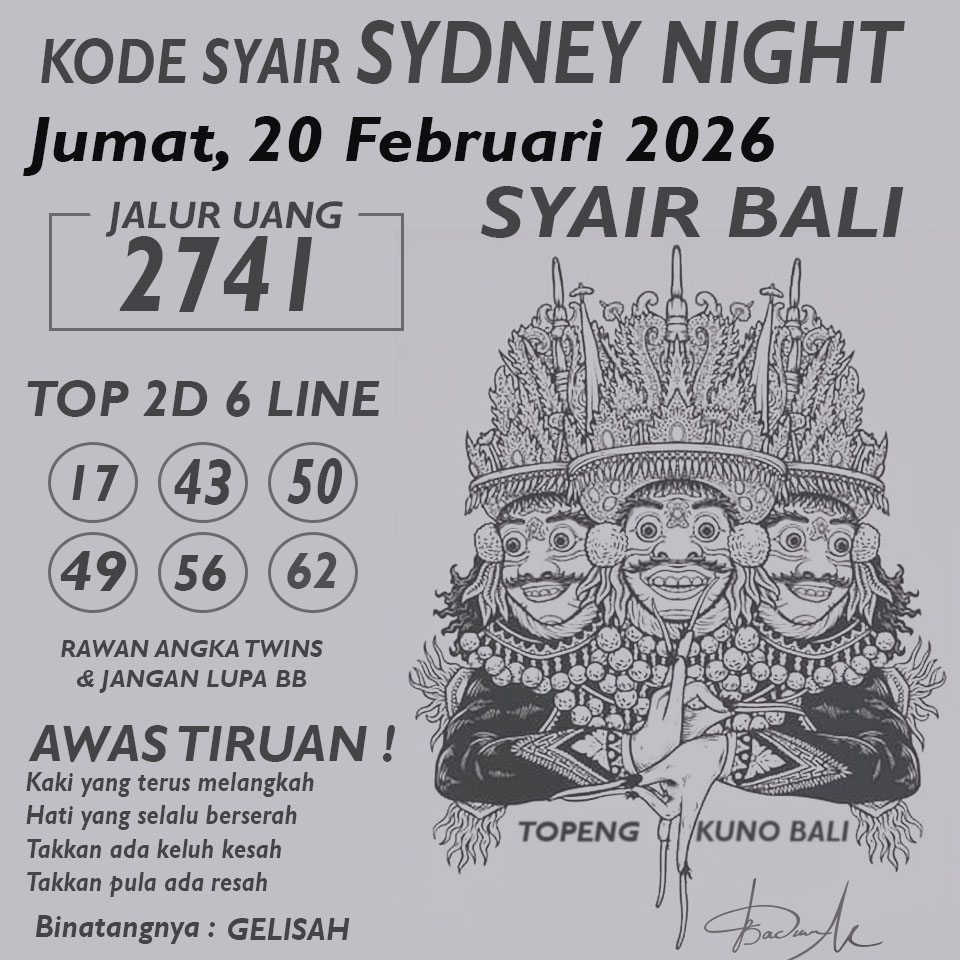 KODE SYAIR SYDNEY NIGHT
Jumat, 20 Februari 2026
SYAIR BALI
JALUR UANG
2741
TOP 2D 6 LINE
17 43 50
49 56 62
RAWAN ANGKA TWINS
& JANGAN LUPA BB
AWAS TIRUAN !
Kaki yang terus melangkah
Hati yang selalu berserah
Takkan ada keluh kesah
Takkan pula ada resah
Binatangnya : GELISAH
TOPENG KUNO BALI